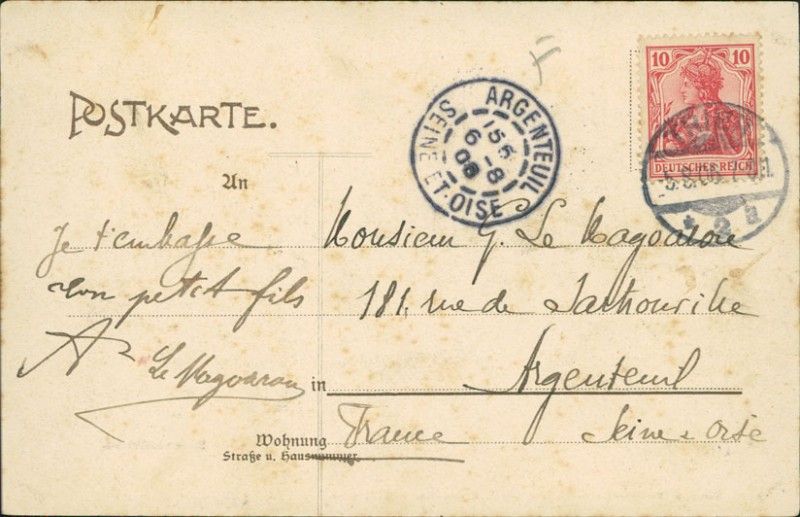 POSTKARTE.
10 10
DEUTSCHES REICH
ARGENTEUIL
SEINE-ET-OISE
15 5
6 - 8
08
An
Je t'embrasse
mon petit fils
Le Magoarou
Monsieur J. Le Magoarou
181, rue de Sartrouville
in Argenteuil
Wohnung France Seine & Oise
Straße u. Hausnummer.